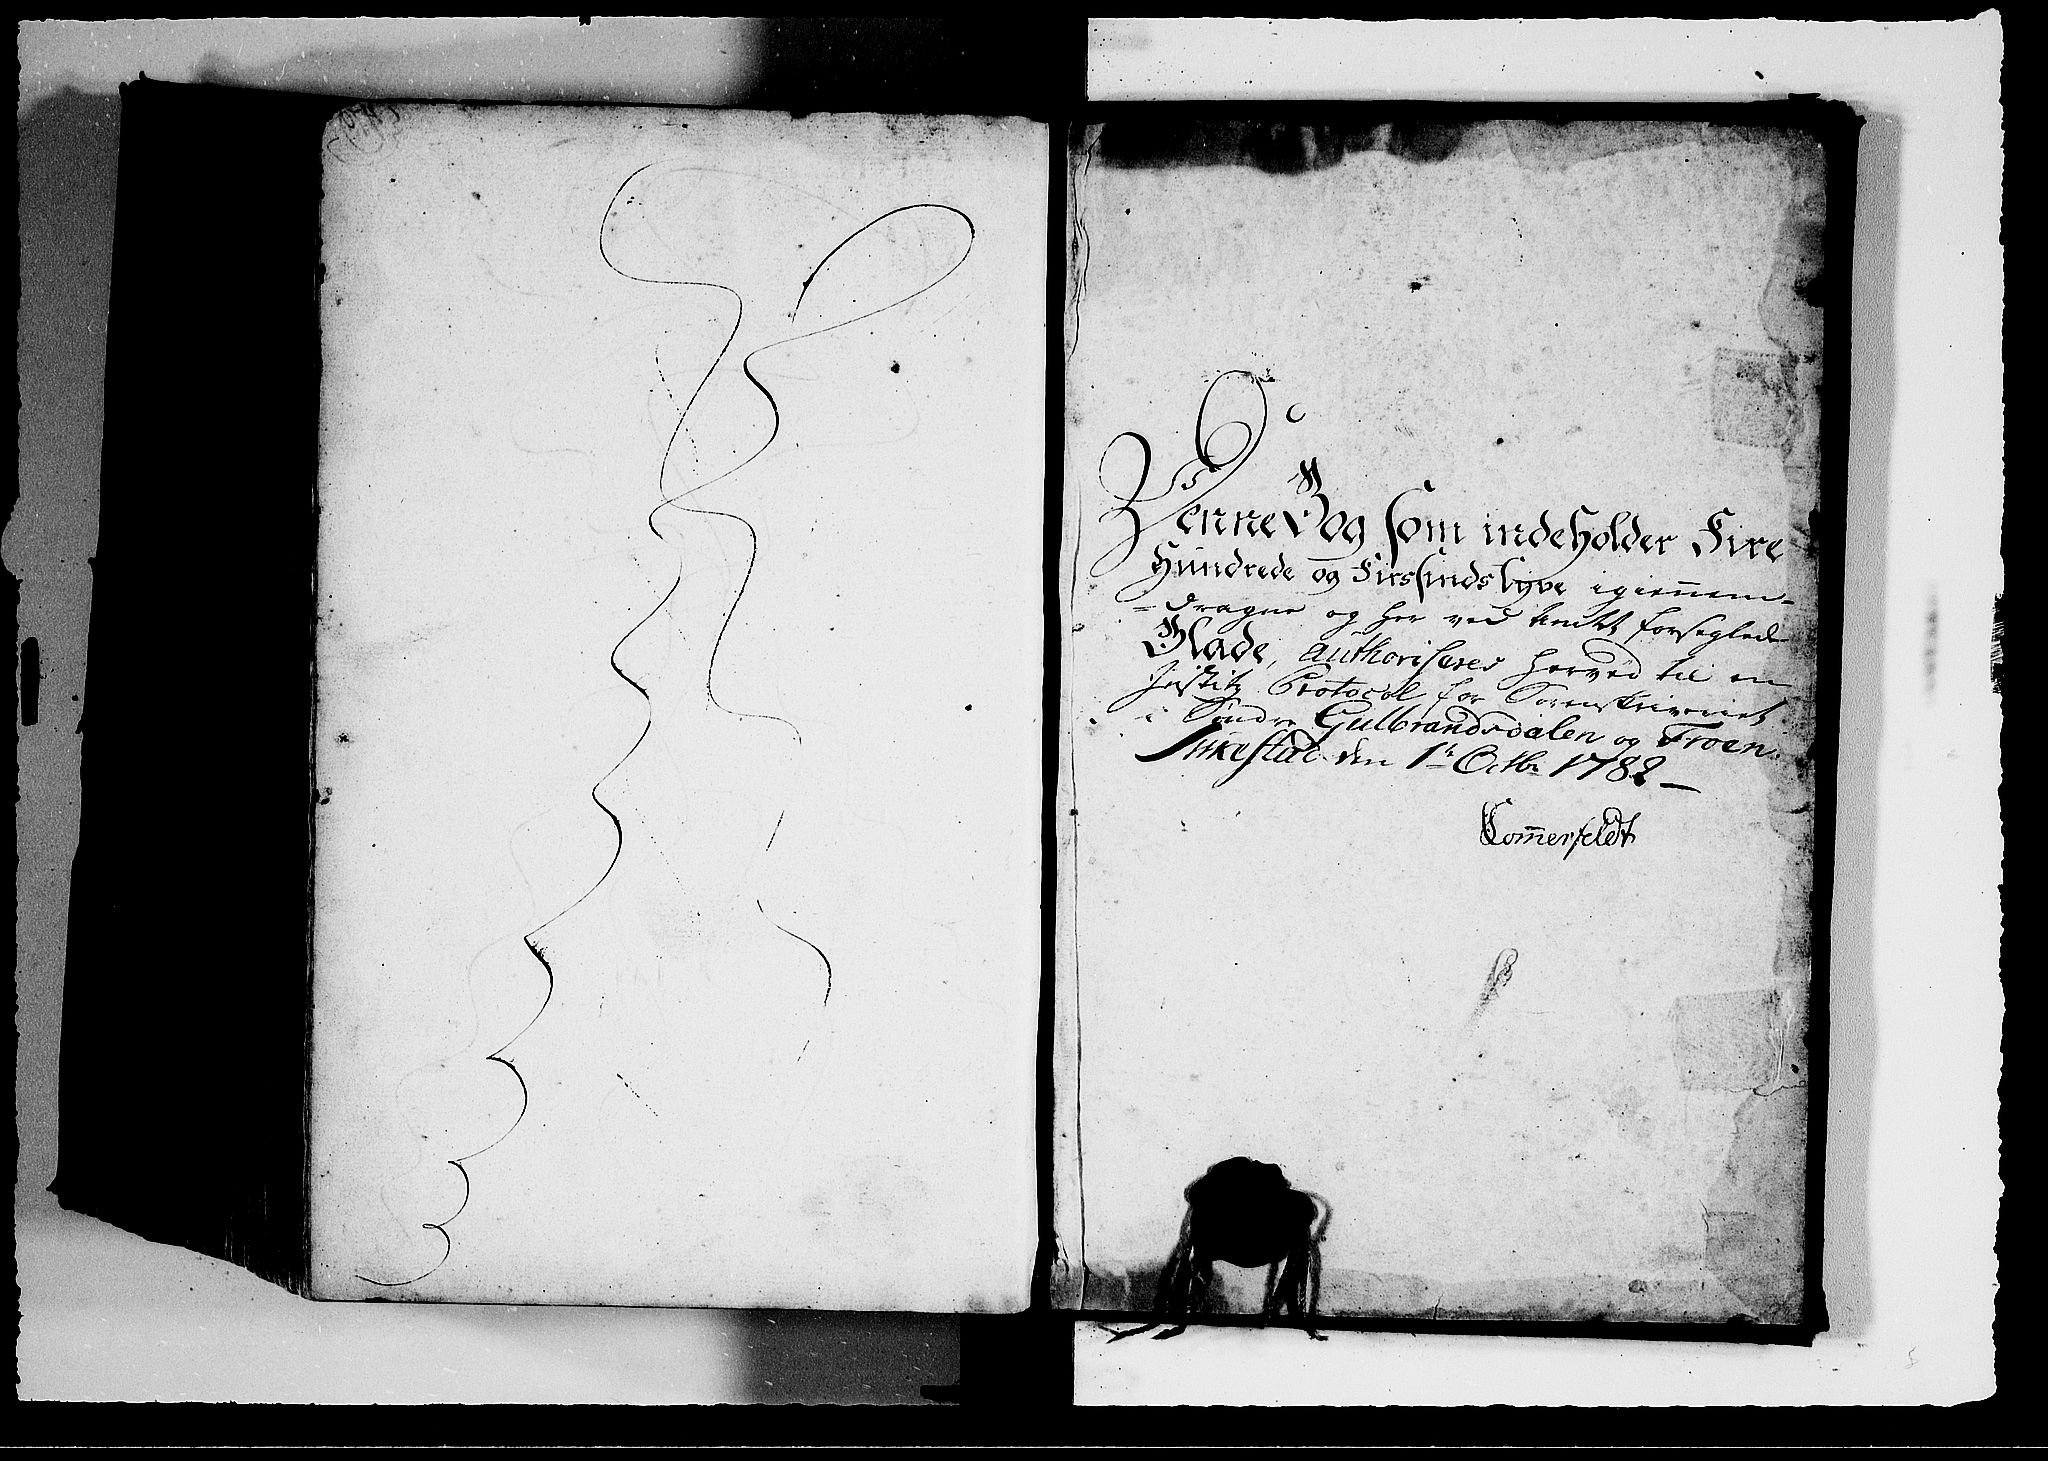 Denne Bog som indeholder Fire
Hundrede og Firesindstyve igiennem-
-dragne og her ved Amtet forseglede
Blade, authoriseres herved til en
Justitz Protocol for Sorenskriveriet
i Søndre Gulbrandsdalen og Froen.
den 1te Octbr 1782 —
Sommerfeldt